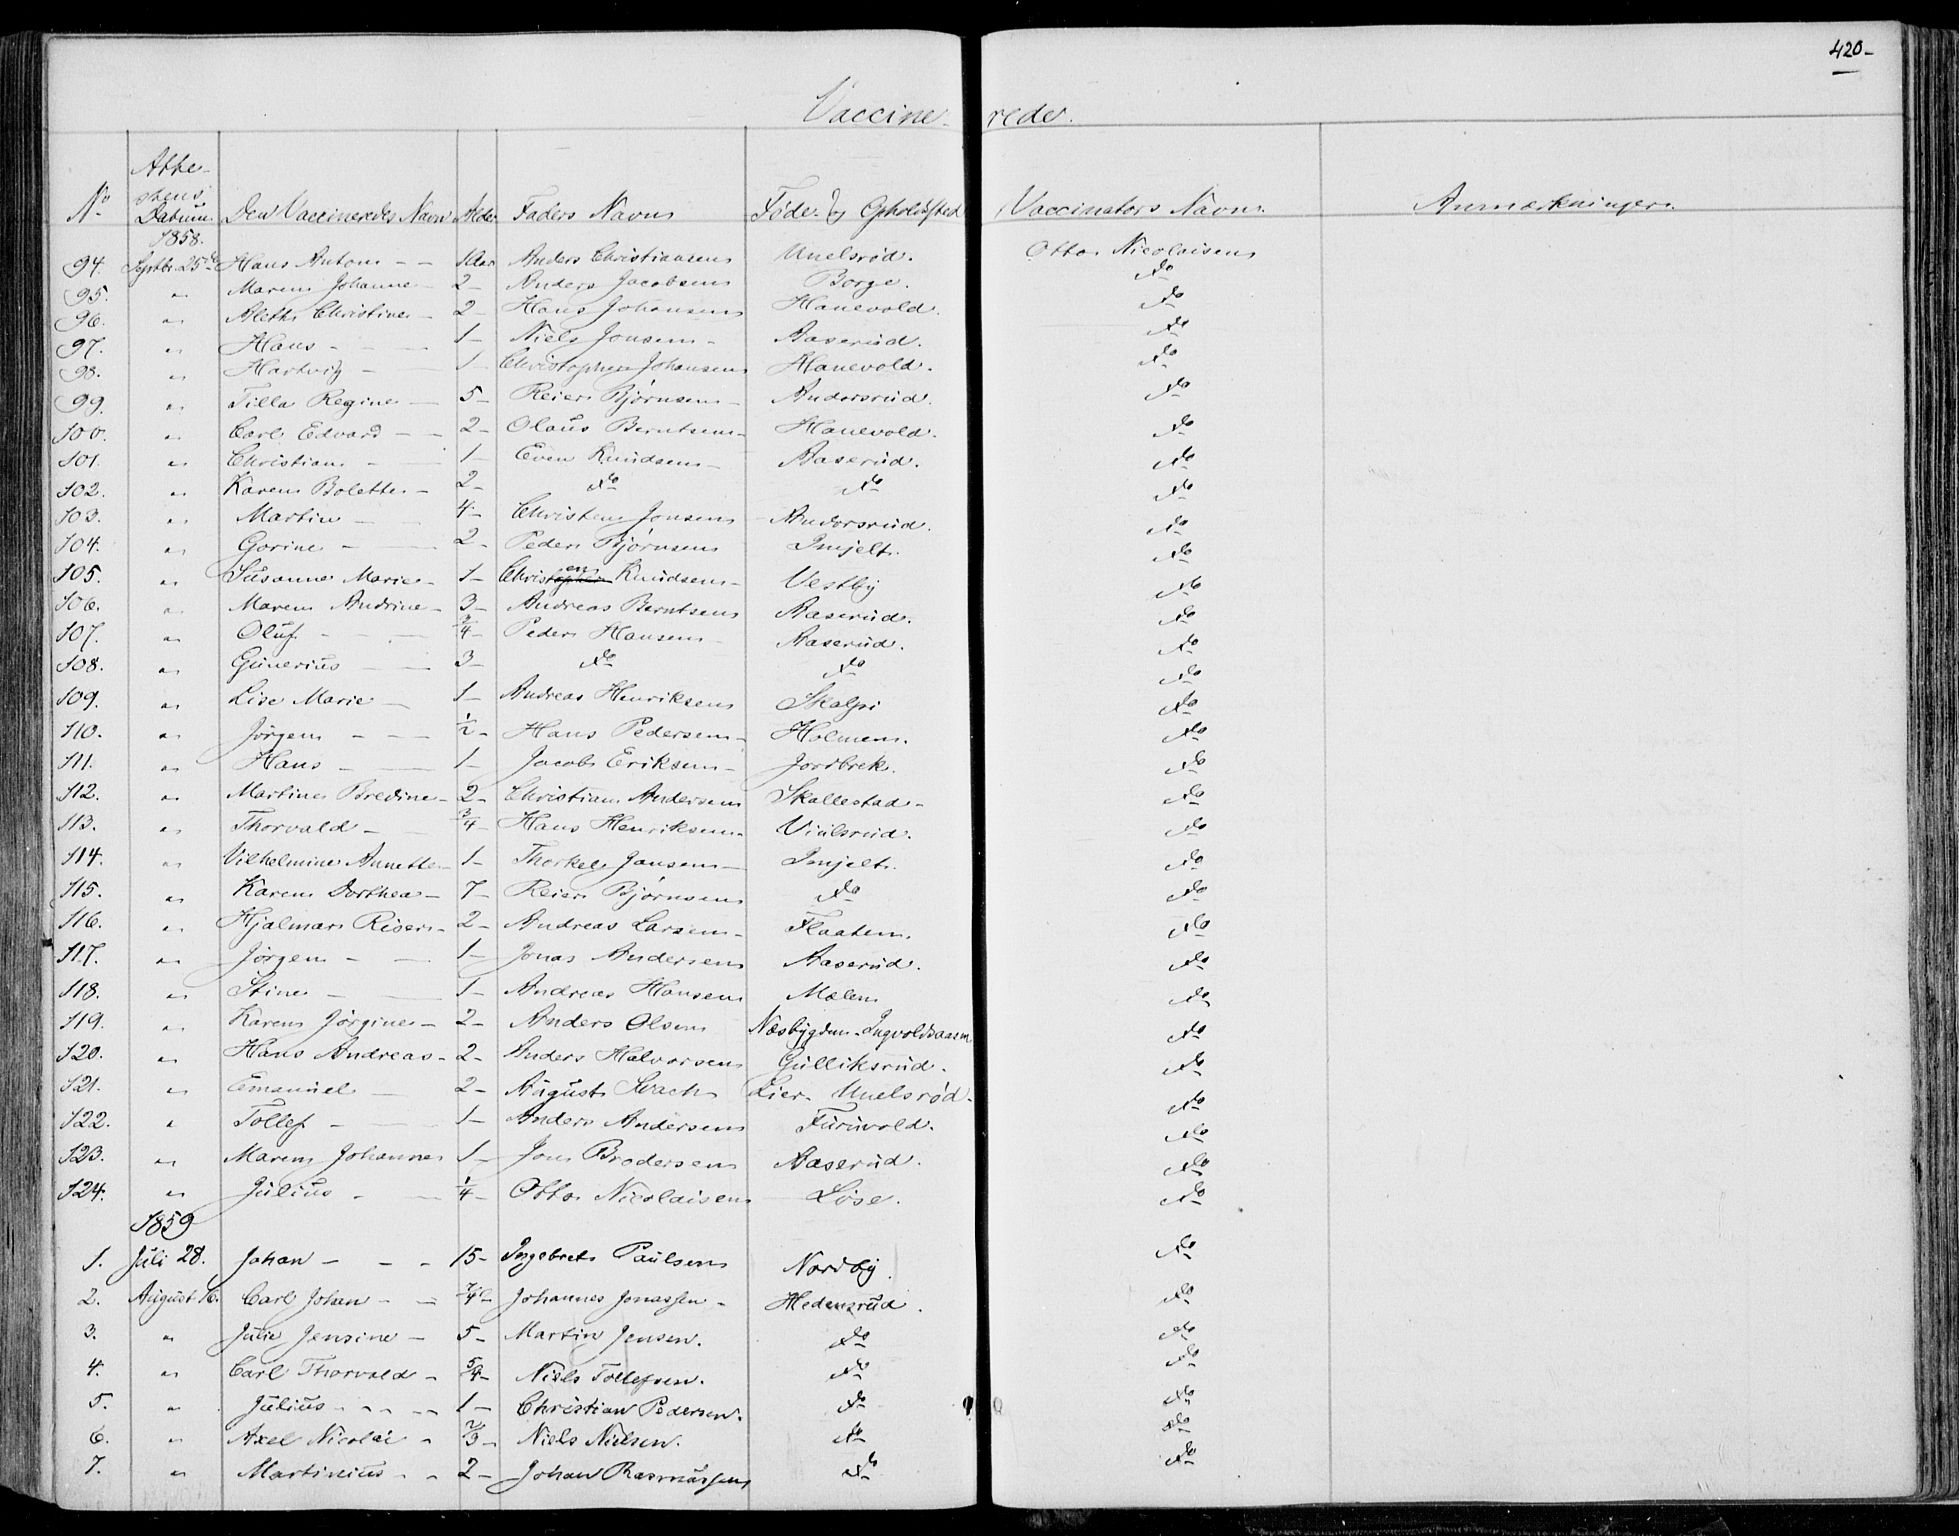 420-
Vaccine-rede.
No Atte-stens Datum. Den Vaccineredes Navn Alder Faders Navn Føde- og Opholdsted Vaccinators Navn. Anmærkninger.
1858.
94. Septbr. 25de Hans Anton - - 1 Aar Anders Christiansen Unelsrød. Otto Nicolaisen
95. " Maren Johanne - 2 - Anders Jacobsen Borge. do
96. " Alethe Christine - 2 - Hans Johansen Hanevold. do
97. " Hans - - 1 - Niels Jonsen - Aaserud. do
98. " Hartvig - - 1 Christopher Johansen Hanevold. do
99. " Tilla Regine - 5 - Reier Bjørnsen - Andorsrud. do
100. " Carl Edvard - - 2 - Olaus Berntsen - Hanevold. do
101. " Christian - - 1 - Even Knudsen - Aaserud. do
102. " Karen Bolette - 2 - do do do
103. " Martin - - 4 - Christen Jonsen - Andorsrud. do
104. " Gorine - - 2 - Peder Bjørnsen Imjelt. do
105. " Susanne Marie - 1 - Christen Knudsen - Vestby do
106. " Maren Andrine - 3 - Andreas Berntsen Aaserud. do
107. " Oluf - - - 3/4 - Peder Hansen - Aaserud. do
108. " Gunerius - - 3 - do do do
109. " Lise Marie - 1 - Andreas Henriksen Skalpi do
110. " Jørgen - - 1/2 - Hans Pedersen - Holmen. do
111. " Hans - - 1 - Jacob Eriksen - Jordbrek. do
112. " Martine Bredine - 2 - Christian Andersen Skallestad - do
113. " Thorvald - - 3/4 - Hans Henriksen - Viulsrud. do
114. " Vilhelmine Annette 1 - Thorkel Jansen - Imjelt. do
115. " Karen Dorthea - 7 - Reier Bjørnsen do do
116. " Hjalmar Riser - 2 - Andreas Larsen - Flaaten. do
117. " Jørgen - - 1 - Jonas Andersen Aaserud. do
118. " Stine - - 1 - Andreas Hansen Mælen do
119. " Karen Jørgine - 2 - Anders Olsen Næsbygden - Ingvoldsaasen do
120. " Hans Andreas - 2 - Anders Halvorsen Gulliksrud. do
121. " Emanuel - 2 - August Svach Lier - Unelsrød. do
122. " Tollef - - 1 - Anders Andersen Furuvold. do
123. " Maren Johanne 1 - Jon Brodersen Aaserud. do
124. " Julius - - 1/4 - Otto Nicolaisen Løse. do
1859
1. Juli 28. Johan - - - 15 - Ingebret Paulsen Nordby. do
2. August 16. Carl Johan - - 7/4 - Johannes Jonassen - Hedensrud. do
3. " Julie Jensine - 5 - Martin Jensen. do do
4. " Carl Thorvald - 5/4 - Niels Tollefsen. do do
5. " Julius - - - - 1 - Christian Pedersen. do do
6. " Axel Nicolai - 2/3 - Niels Nielsen. do do
7. " Martinius - - 2 - Johan Rasmussen do do